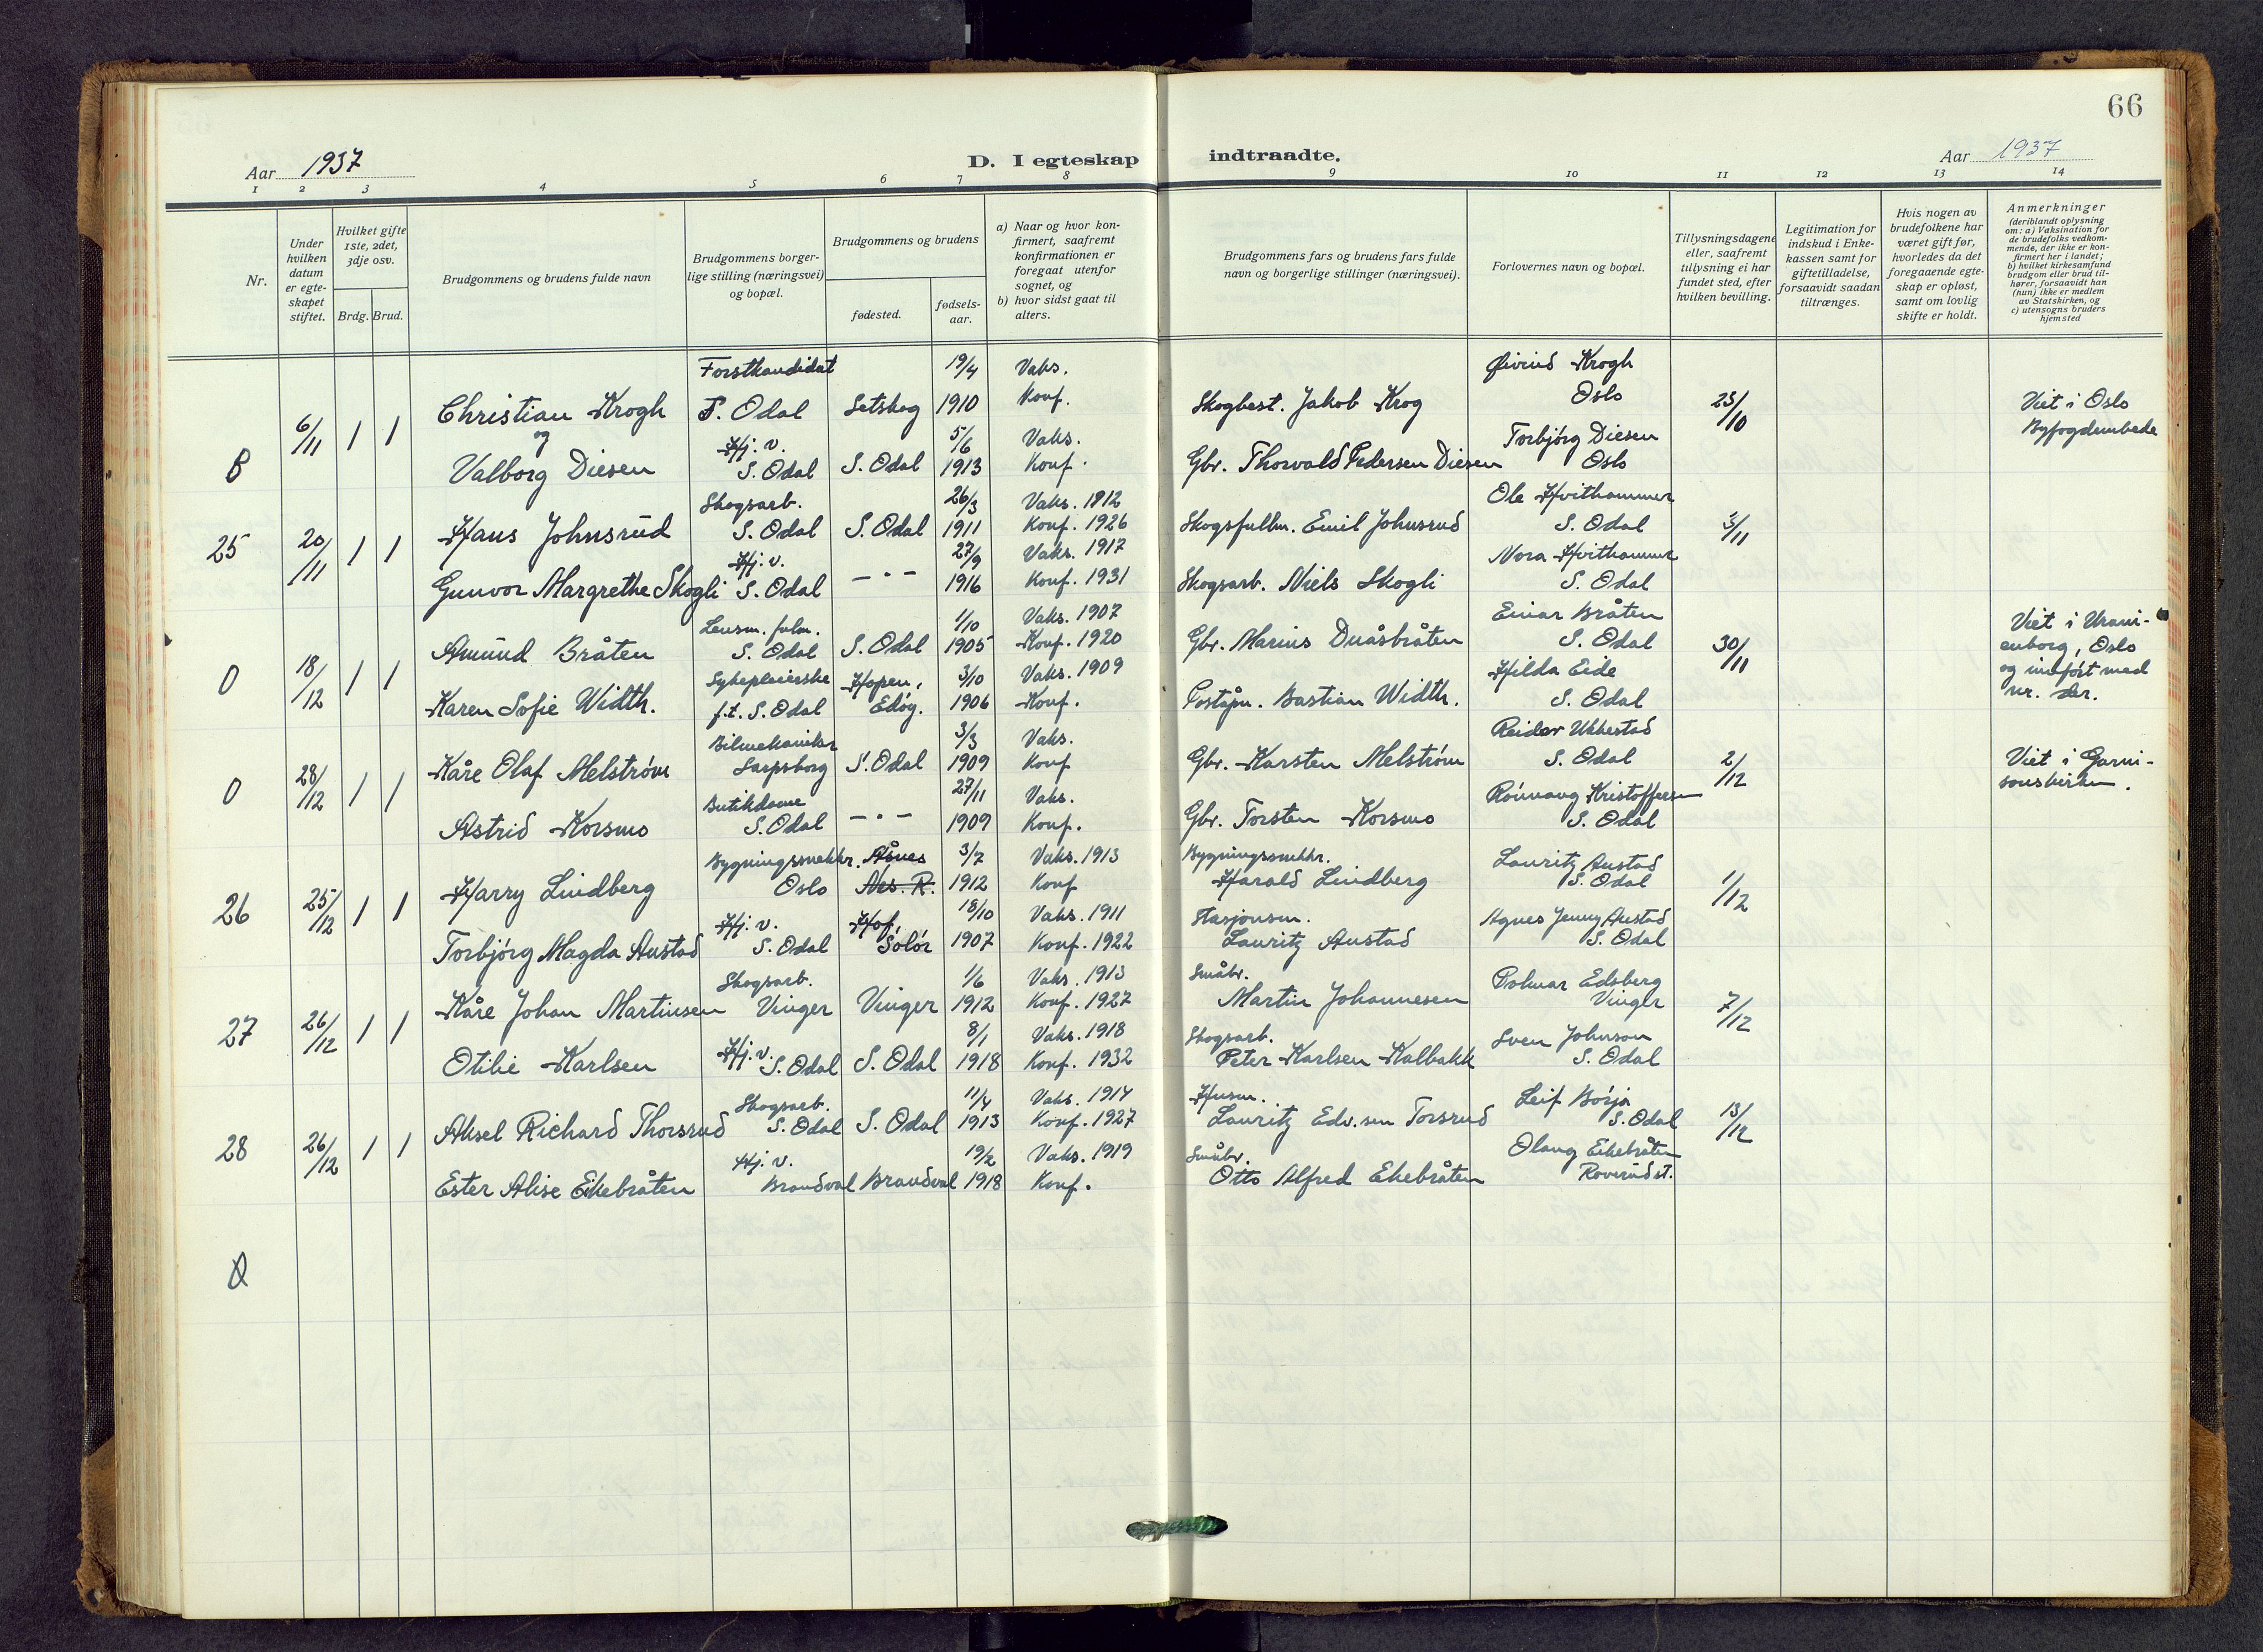 66
Aar 1937
D. I egteskap indtraadte.
Aar 1937
1 2 3 4 5 6 7 8 9 10 11 12 13 14
Nr.
Under hvilken datum er egteskapet stiftet.
Hvilket gifte 1ste, 2det, 3dje osv.
Brdg. Brud.
Brudgommens og brudens fulde navn
Brudgommens borgerlige stilling (næringsvei) og bopæl.
Brudgommens og brudens
fødested.
fødselsaar.
a) Naar og hvor konfirmert, saafremt konfirmationen er foregaat utenfor sognet, og
b) hvor sidst gaat til alters.
Brudgommens fars og brudens fars fulde navn og borgerlige stillinger (næringsvei).
Forlovernes navn og bopæl.
Tillysningsdagene eller, saafremt tillysning ei har fundet sted, efter hvilken bevilling.
Legitimation for indskud i Enkekassen samt for giftetilladelse, forsaavidt saadan tiltrænges.
Hvis nogen av brudefolkene har været gift før, hvorledes da det foregaaende egteskap er opløst, samt om lovlig skifte er holdt.
Anmerkninger (deriblandt oplysning om: a) Vaksination for de brudefolks vedkommende, der ikke er konfirmert her i landet; b) hvilket kirkesamfund brudgom eller brud tilhører, forsaavidt han (hun) ikke er medlem av Statskirken, og c) utensogns bruders hjemsted
Forstkandidat 19/4 Vaks. Øivind Krogh
Christian Krogh S. Odal Setskog 1910 Konf. Skogbest. Jakob Krog Oslo 23/10 Viet i Oslo
0 6/11 1 1 og Hj. v. 5/6 Vaks. Torbjørg Diesen Byfogdembede
Valborg Diesen S. Odal S. Odal 1913 Konf. Gbr. Thorvald Pedersen Diesen Oslo
Skogsarb. 26/3 Vaks. 1812 Ole Hvithammer
25 20/11 1 1 Hans Johnsrud S. Odal S. Odal 1911 Konf. 1926 Skogsfullm. Emil Johnsrud S. Odal 3/11
Hj. v. 27/9 Vaks. 1917 Nora Hvithammer
Gunvor Margrethe Skogli S. Odal - " - 1916 Konf. 1931 Skogsarb. Niels Skogli S. Odal
Lensm. fulm. 1/10 Vaks. 1907 Einar Bråten Viet i Urani-
Amund Bråten S. Odal S. Odal 1905 Konf. 1920 Gbr. Marius Duåsbråten S. Odal 30/11 enborg, Oslo
0 18/12 1 1 Sykepleierske Hopen, 3/10 Vaks. 1909 Hilda Eide og innført med
Karen Sofie Width. f.t. S. Odal Edøy. 1906 Konf. Poståpn. Bastian Width. S. Odal nr. der.
Bilmekaniker 3/3 Vaks. Reidar Ukkestad
0 28/12 1 1 Kåre Olaf Melstrøm Sarpsborg S. Odal 1909 Konf Gbr. Karsten Melstrøm S. Odal 2/12 Viet i Garni-
Butikdame 27/11 Vaks. Rønnaug Kristoffersen sonskirken.
Astrid Korsmo S. Odal - " - 1909 Konf. Gbr. Torsten Korsmo S. Odal
Bygningssnekkr. Åsnes 3/7 Vaks. 1913 Bygningssnekkr. Lauritz Austad
26 25/12 1 1 Harry Lindberg Oslo Nes. R. 1912 Konf Harald Lindberg S. Odal 1/12
Hj. v. Hof, 18/10 Vaks. 1911 Stasjonsm. Agnes Jenny Austad
Torbjørg Magda Austad S. Odal Solør 1907 Konf. 1922 Lauritz Austad S. Odal
Skogsarb. 1/6 Vaks. 1913 Småbr. Polmar Edsberg
27 26/12 1 1 Kåre Johan Martinsen Vinger Vinger 1912 Konf. 1927 Martin Johannesen Vinger 7/12
Hj. v. 8/1 Vaks. 1918 Skogsarb. Sven Johnson
Otilie Karlsen S. Odal S. Odal 1918 Konf. 1932 Peter Karlsen Kalbakk S. Odal
Skogsarb. 11/4 Vaks. 1914 Husm. Leif Børja
28 26/12 1 1 Aksel Richard Thorsrud S. Odal S. Odal 1913 Konf. 1927 Lauritz Edv.sen Torsrud S. Odal 13/12
Hj. v. 19/2 Vaks. 1919 Småbr. Olaug Eikebråten
Ester Alise Eikebråten Brandval Brandval 1918 Konf. Otto Alfred Ekebråten Roverud st.